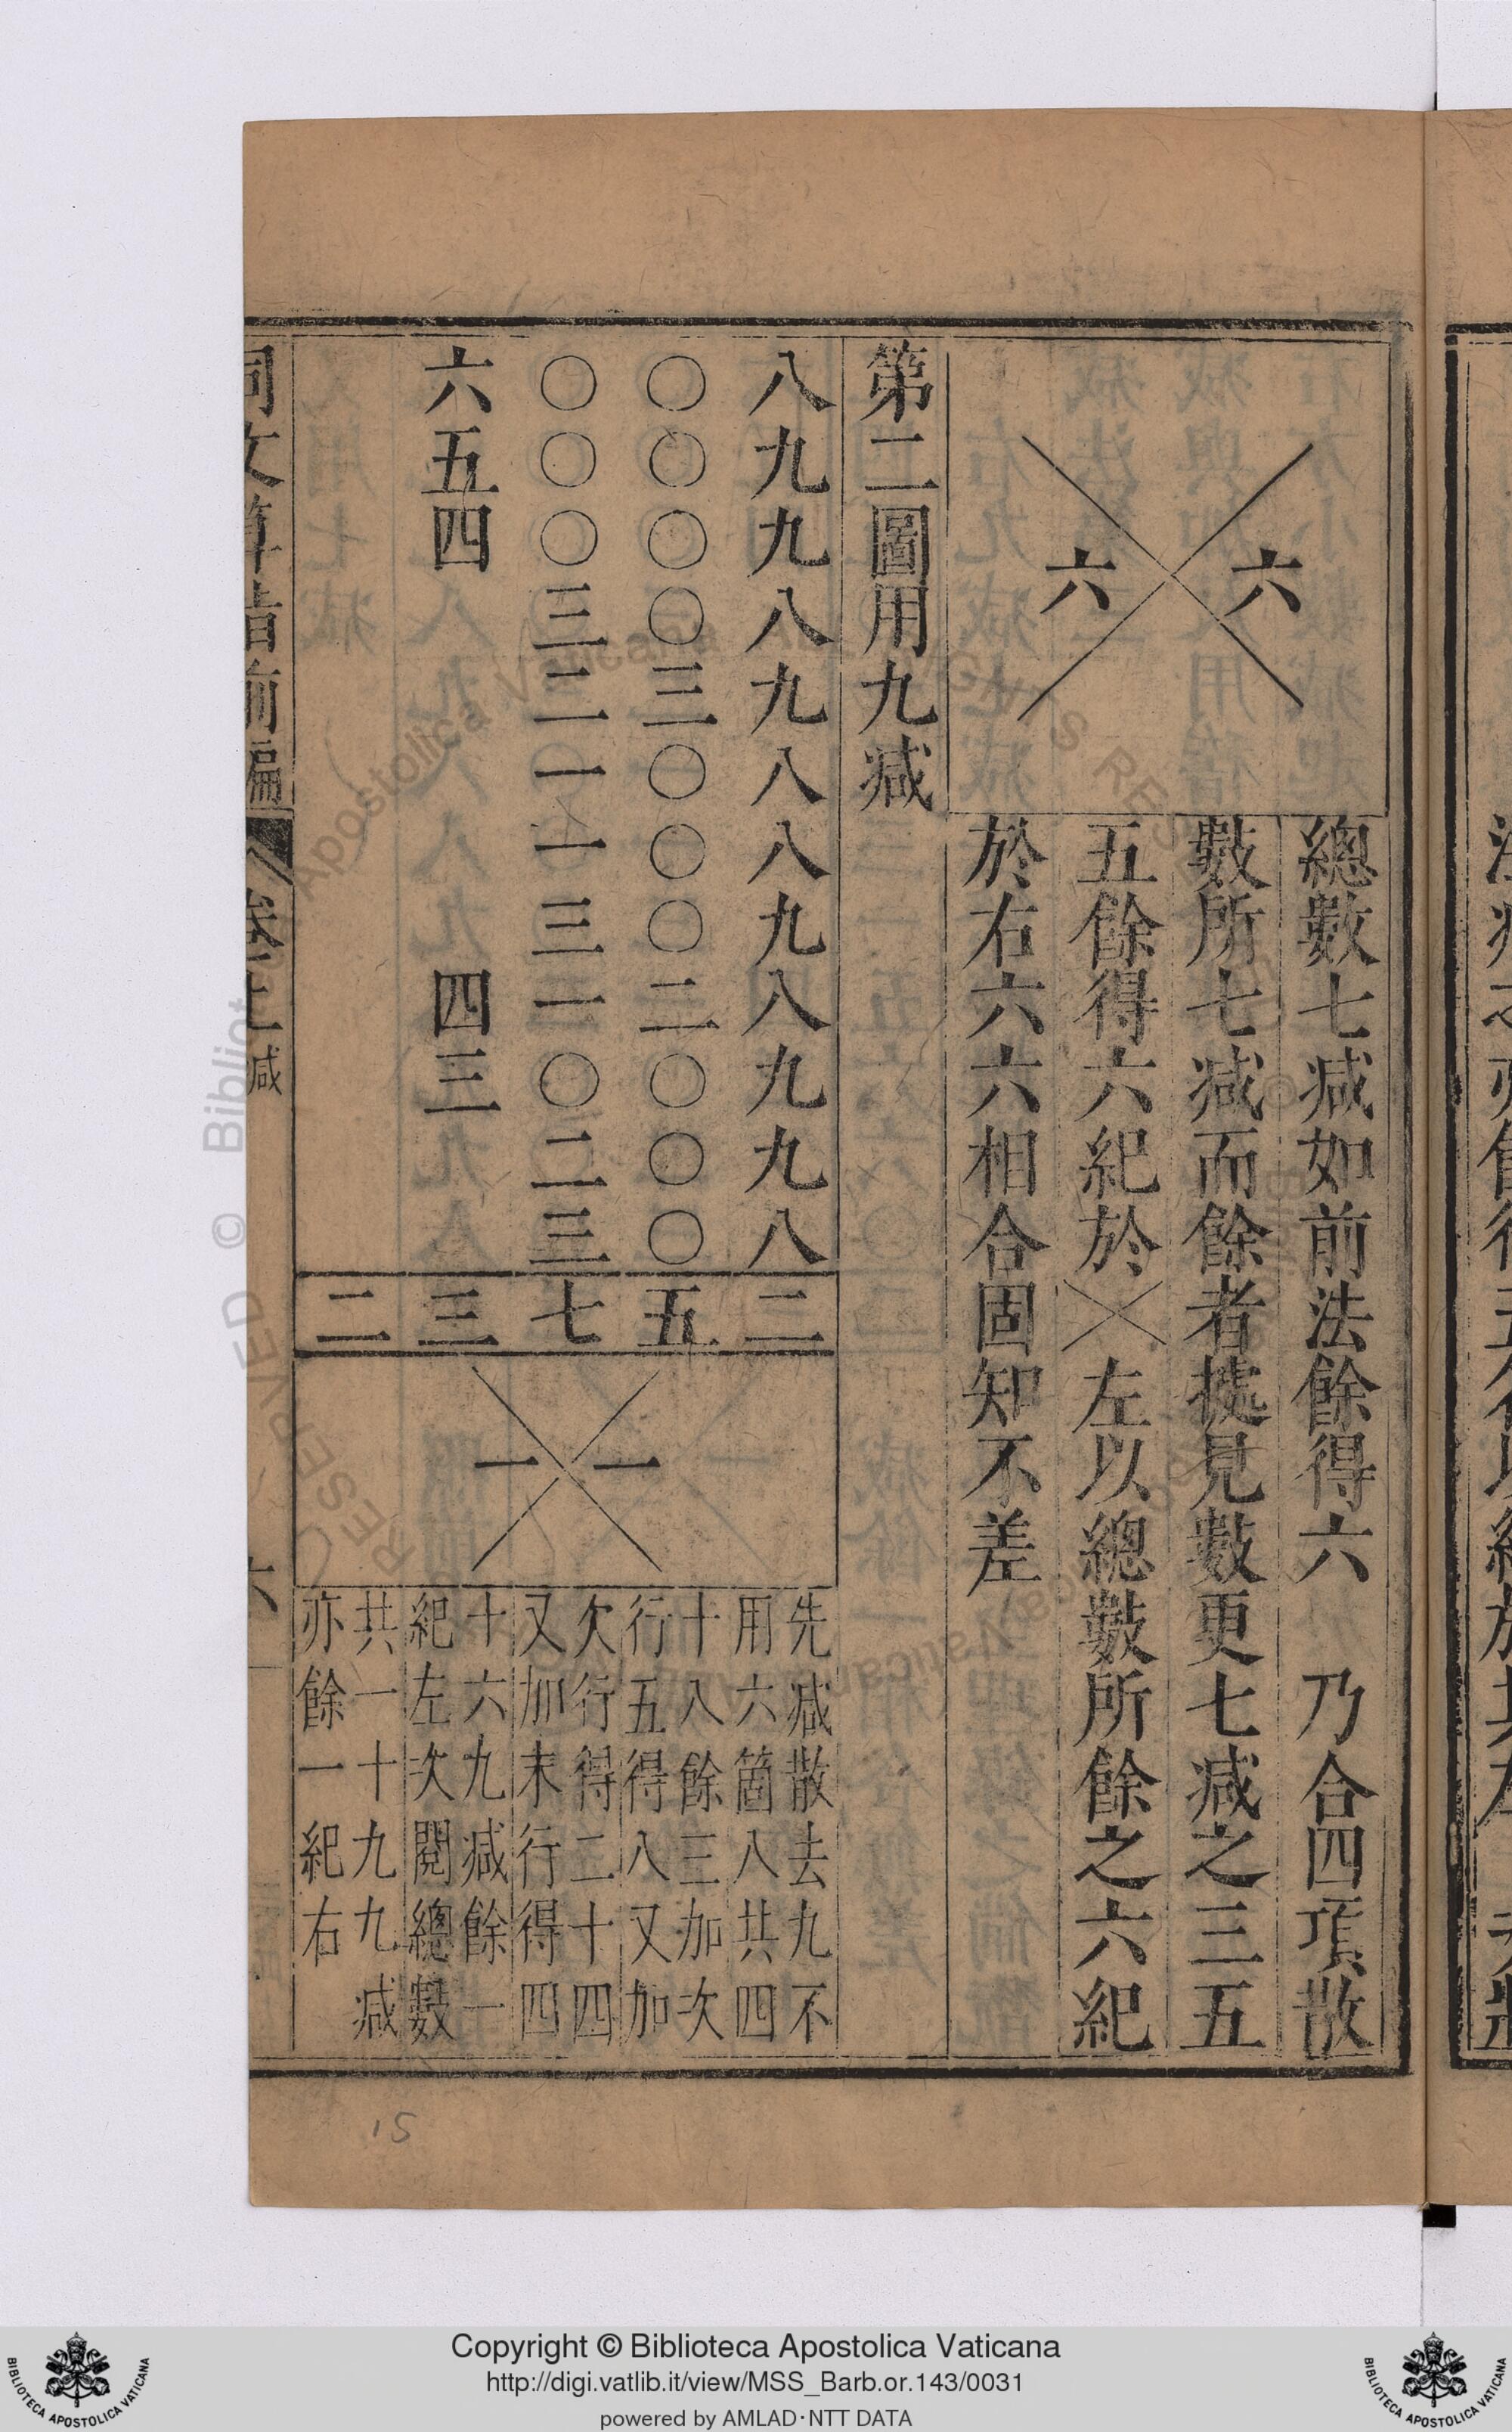 六
六
總數七减如前法餘得六　乃合四項散
數所七减而餘者㨿見數更七减之三五
五餘得六紀於╳左以總數所餘之六紀
於右六六相合固知不差
第二圖用九减
八九九八九八八九八九九八　二
〇〇〇〇三〇〇〇二〇〇〇　五
〇〇〇三二一一三一〇二三　七
六五四　四三　三
二
一
一
先减散去九不
用六箇八共四
十八餘三加次
行五得八又加
欠行得二十四
又加末行得四
十六九减餘一
紀左次閱總數
共一十九九减
亦餘一紀右
同文算指前編　卷上　减　六
15
Copyright © Biblioteca Apostolica Vaticana
http://digi.vatlib.it/view/MSS_Barb.or.143/0031
powered by AMLAD･NTT DATA
BIBLIOTECA APOSTOLICA VATICANA
BIBLIOTECA APOSTOLICA VATICANA